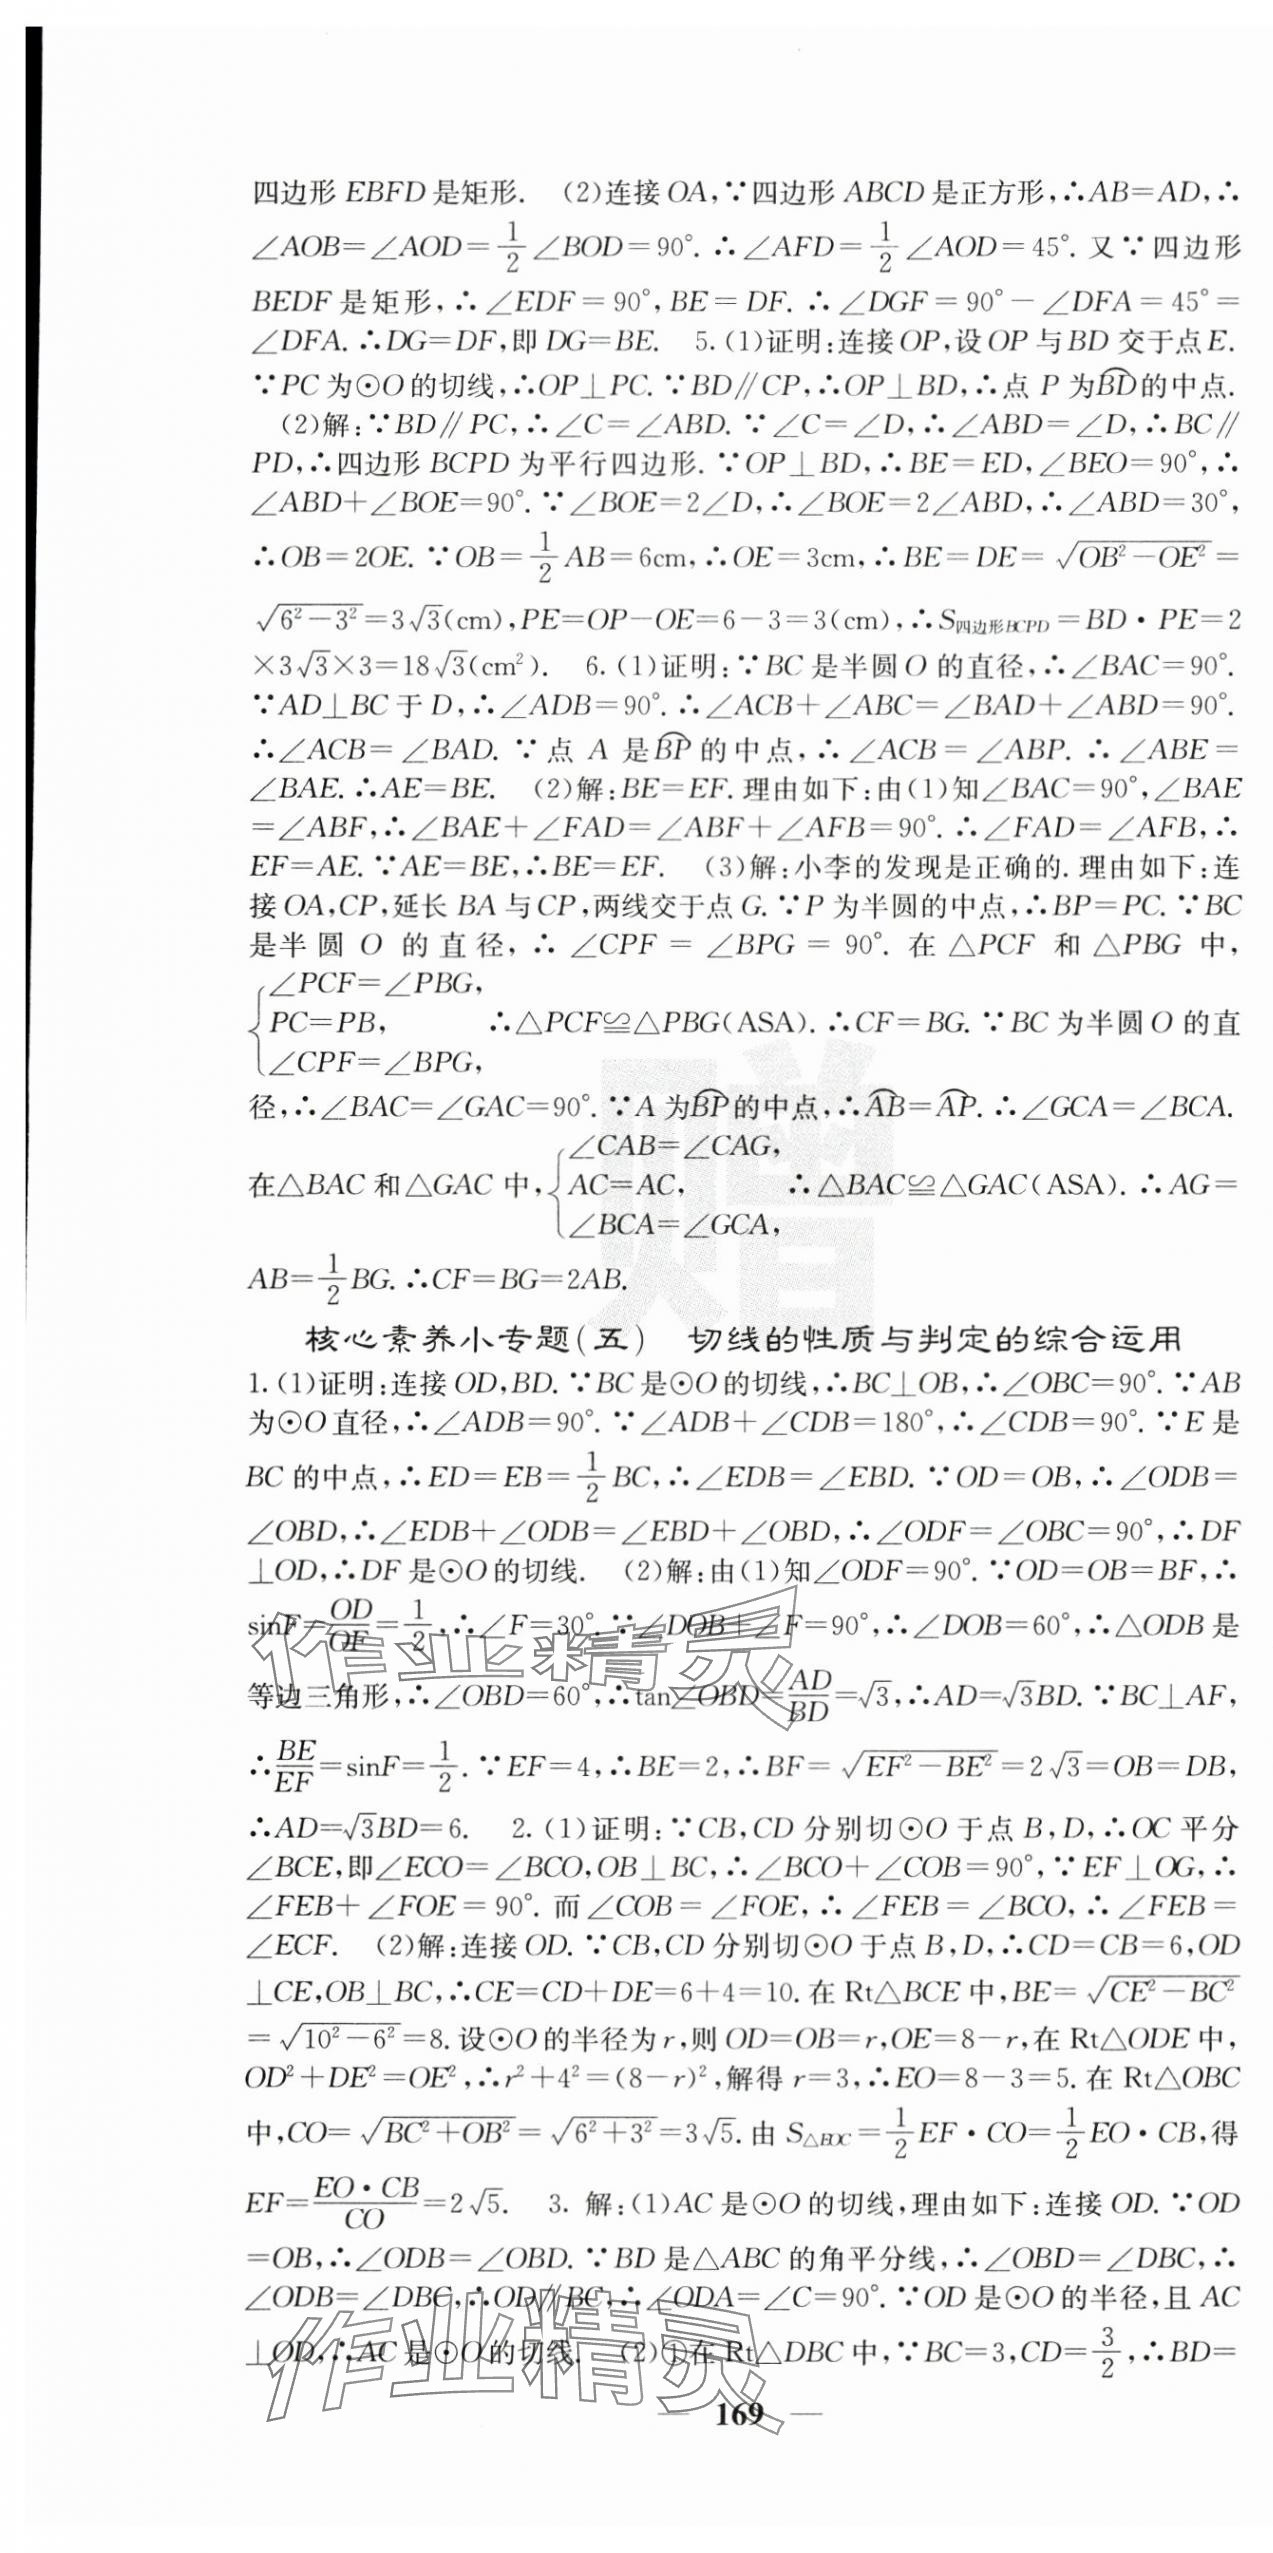 四边形 EBFD 是矩形. (2)连接 OA,∵四边形 ABCD 是正方形,∴AB=AD,∴
∠AOB=∠AOD=1/2∠BOD=90°.∴∠AFD=1/2∠AOD=45°.又∵四边形
BEDF 是矩形,∴∠EDF=90°,BE=DF.∴∠DGF=90°-∠DFA=45°=
∠DFA.∴DG=DF,即 DG=BE. 5.(1)证明:连接 OP,设 OP 与 BD 交于点 E.
∵PC 为⊙O 的切线,∴OP⊥PC.∵BD∥CP,∴OP⊥BD,∴点 P 为⌒BD的中点.
(2)解:∵BD∥PC,∴∠C=∠ABD.∵∠C=∠D,∴∠ABD=∠D,∴BC∥
PD,∴四边形 BCPD 为平行四边形.∵OP⊥BD,∴BE=ED,∠BEO=90°,∴
∠ABD+∠BOE=90°.∵∠BOE=2∠D,∴∠BOE=2∠ABD,∴∠ABD=30°,
∴OB=2OE.∵OB=1/2 AB=6cm,∴OE=3cm,∴BE=DE=√(OB²-OE²)=
√(6²-3²)=3√3(cm),PE=OP-OE=6-3=3(cm),∴S四边形BCPD=BD·PE=2
×3√3×3=18√3(cm²). 6.(1)证明:∵BC 是半圆 O 的直径,∴∠BAC=90°.
∵AD⊥BC 于 D,∴∠ADB=90°.∴∠ACB+∠ABC=∠BAD+∠ABD=90°.
∴∠ACB=∠BAD.∵点 A 是⌒BP的中点,∴∠ACB=∠ABP.∴∠ABE=
∠BAE.∴AE=BE. (2)解:BE=EF.理由如下:由(1)知∠BAC=90°,∠BAE
=∠ABF,∴∠BAE+∠FAD=∠ABF+∠AFB=90°.∴∠FAD=∠AFB,∴
EF=AE.∵AE=BE,∴BE=EF. (3)解:小李的发现是正确的.理由如下:连
接 OA,CP,延长 BA 与 CP,两线交于点 G.∵P 为半圆的中点,∴BP=PC.∵BC
是半圆 O 的直径,∴∠CPF=∠BPG=90°.在△PCF 和△PBG 中,
∠PCF=∠PBG,
PC=PB, ∴△PCF≌△PBG(ASA).∴CF=BG.∵BC 为半圆 O 的直
∠CPF=∠BPG,
径,∴∠BAC=∠GAC=90°.∵A 为⌒BP的中点,∴⌒AB=⌒AP.∴∠GCA=∠BCA.
∠CAB=∠CAG,
在△BAC 和△GAC 中, AC=AC, ∴△BAC≌△GAC(ASA).∴AG=
∠BCA=∠GCA,
AB=1/2 BG.∴CF=BG=2AB.
核心素养小专题(五) 切线的性质与判定的综合运用
1.(1)证明:连接 OD,BD.∵BC 是⊙O 的切线,∴BC⊥OB,∴∠OBC=90°.∵AB
为⊙O 直径,∴∠ADB=90°.∵∠ADB+∠CDB=180°,∴∠CDB=90°.∵E 是
BC 的中点,∴ED=EB=1/2 BC,∴∠EDB=∠EBD.∵OD=OB,∴∠ODB=
∠OBD,∴∠EDB+∠ODB=∠EBD+∠OBD,∴∠ODF=∠OBC=90°,∴DF
⊥OD,∴DF 是⊙O 的切线. (2)解:由(1)知∠ODF=90°.∵OD=OB=BF,∴
sinF=OD/OF=1/2,∴∠F=30°.∵∠DOB+∠F=90°,∴∠DOB=60°,∴△ODB 是
等边三角形,∴∠OBD=60°,∴tan∠OBD=AD/BD=√3,∴AD=√3BD.∵BC⊥AF,
∴BE/EF=sinF=1/2.∵EF=4,∴BE=2,∴BF=√(EF²-BE²)=2√3=OB=DB,
∴AD=√3BD=6. 2.(1)证明:∵CB,CD 分别切⊙O 于点 B,D,∴OC 平分
∠BCE,即∠ECO=∠BCO,OB⊥BC,∴∠BCO+∠COB=90°,∵EF⊥OG,∴
∠FEB+∠FOE=90°.而∠COB=∠FOE,∴∠FEB=∠BCO,∴∠FEB=
∠ECF. (2)解:连接 OD.∵CB,CD 分别切⊙O 于点 B,D,∴CD=CB=6,OD
⊥CE,OB⊥BC,∴CE=CD+DE=6+4=10.在 Rt△BCE 中,BE=√(CE²-BC²)
=√(10²-6²)=8.设⊙O 的半径为 r,则 OD=OB=r,OE=8-r,在 Rt△ODE 中,
OD²+DE²=OE²,∴r²+4²=(8-r)²,解得 r=3,∴EO=8-3=5.在 Rt△OBC
中,CO=√(BC²+OB²)=√(6²+3²)=3√5.由 S△EOC=1/2 EF·CO=1/2 EO·CB,得
EF=EO·CB/CO=2√5. 3. 解:(1)AC 是⊙O 的切线,理由如下:连接 OD.∵OD
=OB,∴∠ODB=∠OBD.∵BD 是△ABC 的角平分线,∴∠OBD=∠DBC,∴
∠ODB=∠DBC,∴OD∥BC,∴∠ODA=∠C=90°.∵OD 是⊙O 的半径,且 AC
⊥OD,∴AC 是⊙O 的切线. (2)①在 Rt△DBC 中,∵BC=3,CD=3/2,∴BD=
— 169 —
赠
作业精灵
作业精灵